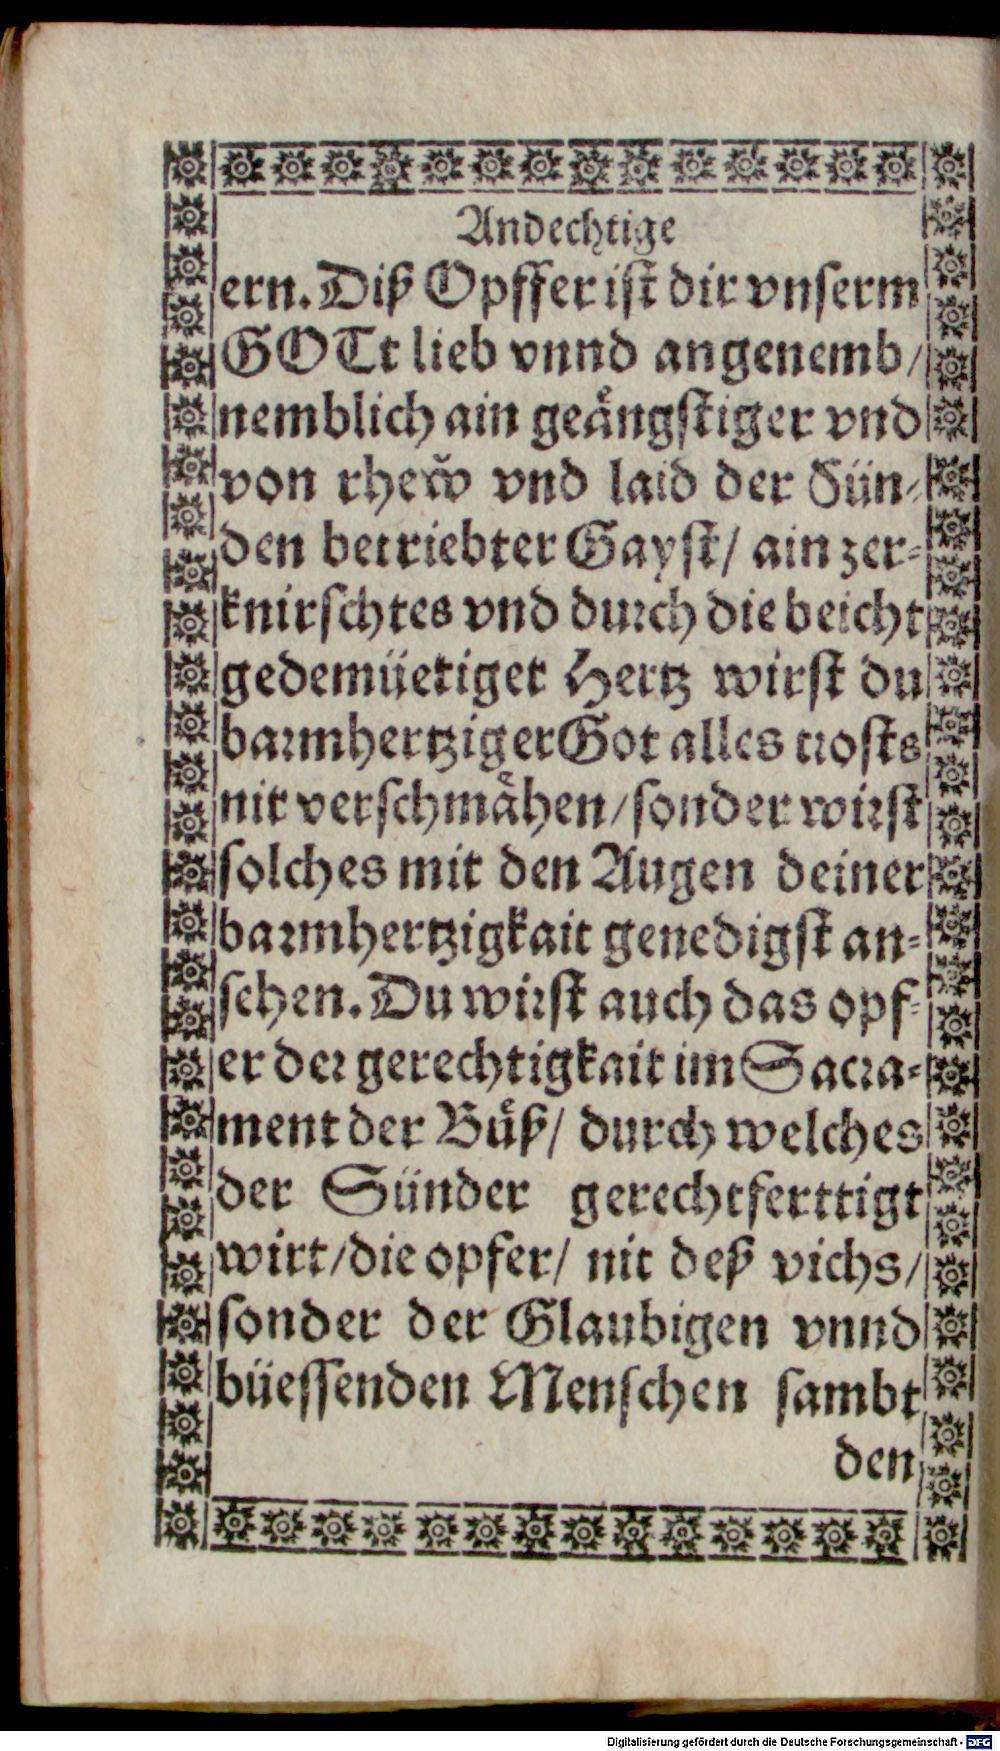 Andechtige
ern. Diß Opffer ist dir vnserm
GOTt lieb vnnd angenemb/
nemblich ain geängstiger vnd
von rhew vnd laid der Sün-
den betriebter Gayst/ ain zer-
knirschtes vnd durch die beicht
gedemüetiget Hertz wirst du
barmhertziger Got alles trosts
nit verschmähen/ sonder wirst
solches mit den Augen deiner
barmhertzigkait genedigst an-
sehen. Du wirst auch das opf-
er der gerechtigkait im Sacra-
ment der Bůß/ durch welches
der Sünder gerechtferttigt
wirt/ die opfer/ nit deß vichs/
sonder der Glaubigen vnnd
büessenden Menschen sambt
den
Digitalisierung gefördert durch die Deutsche Forschungsgemeinschaft - DFG